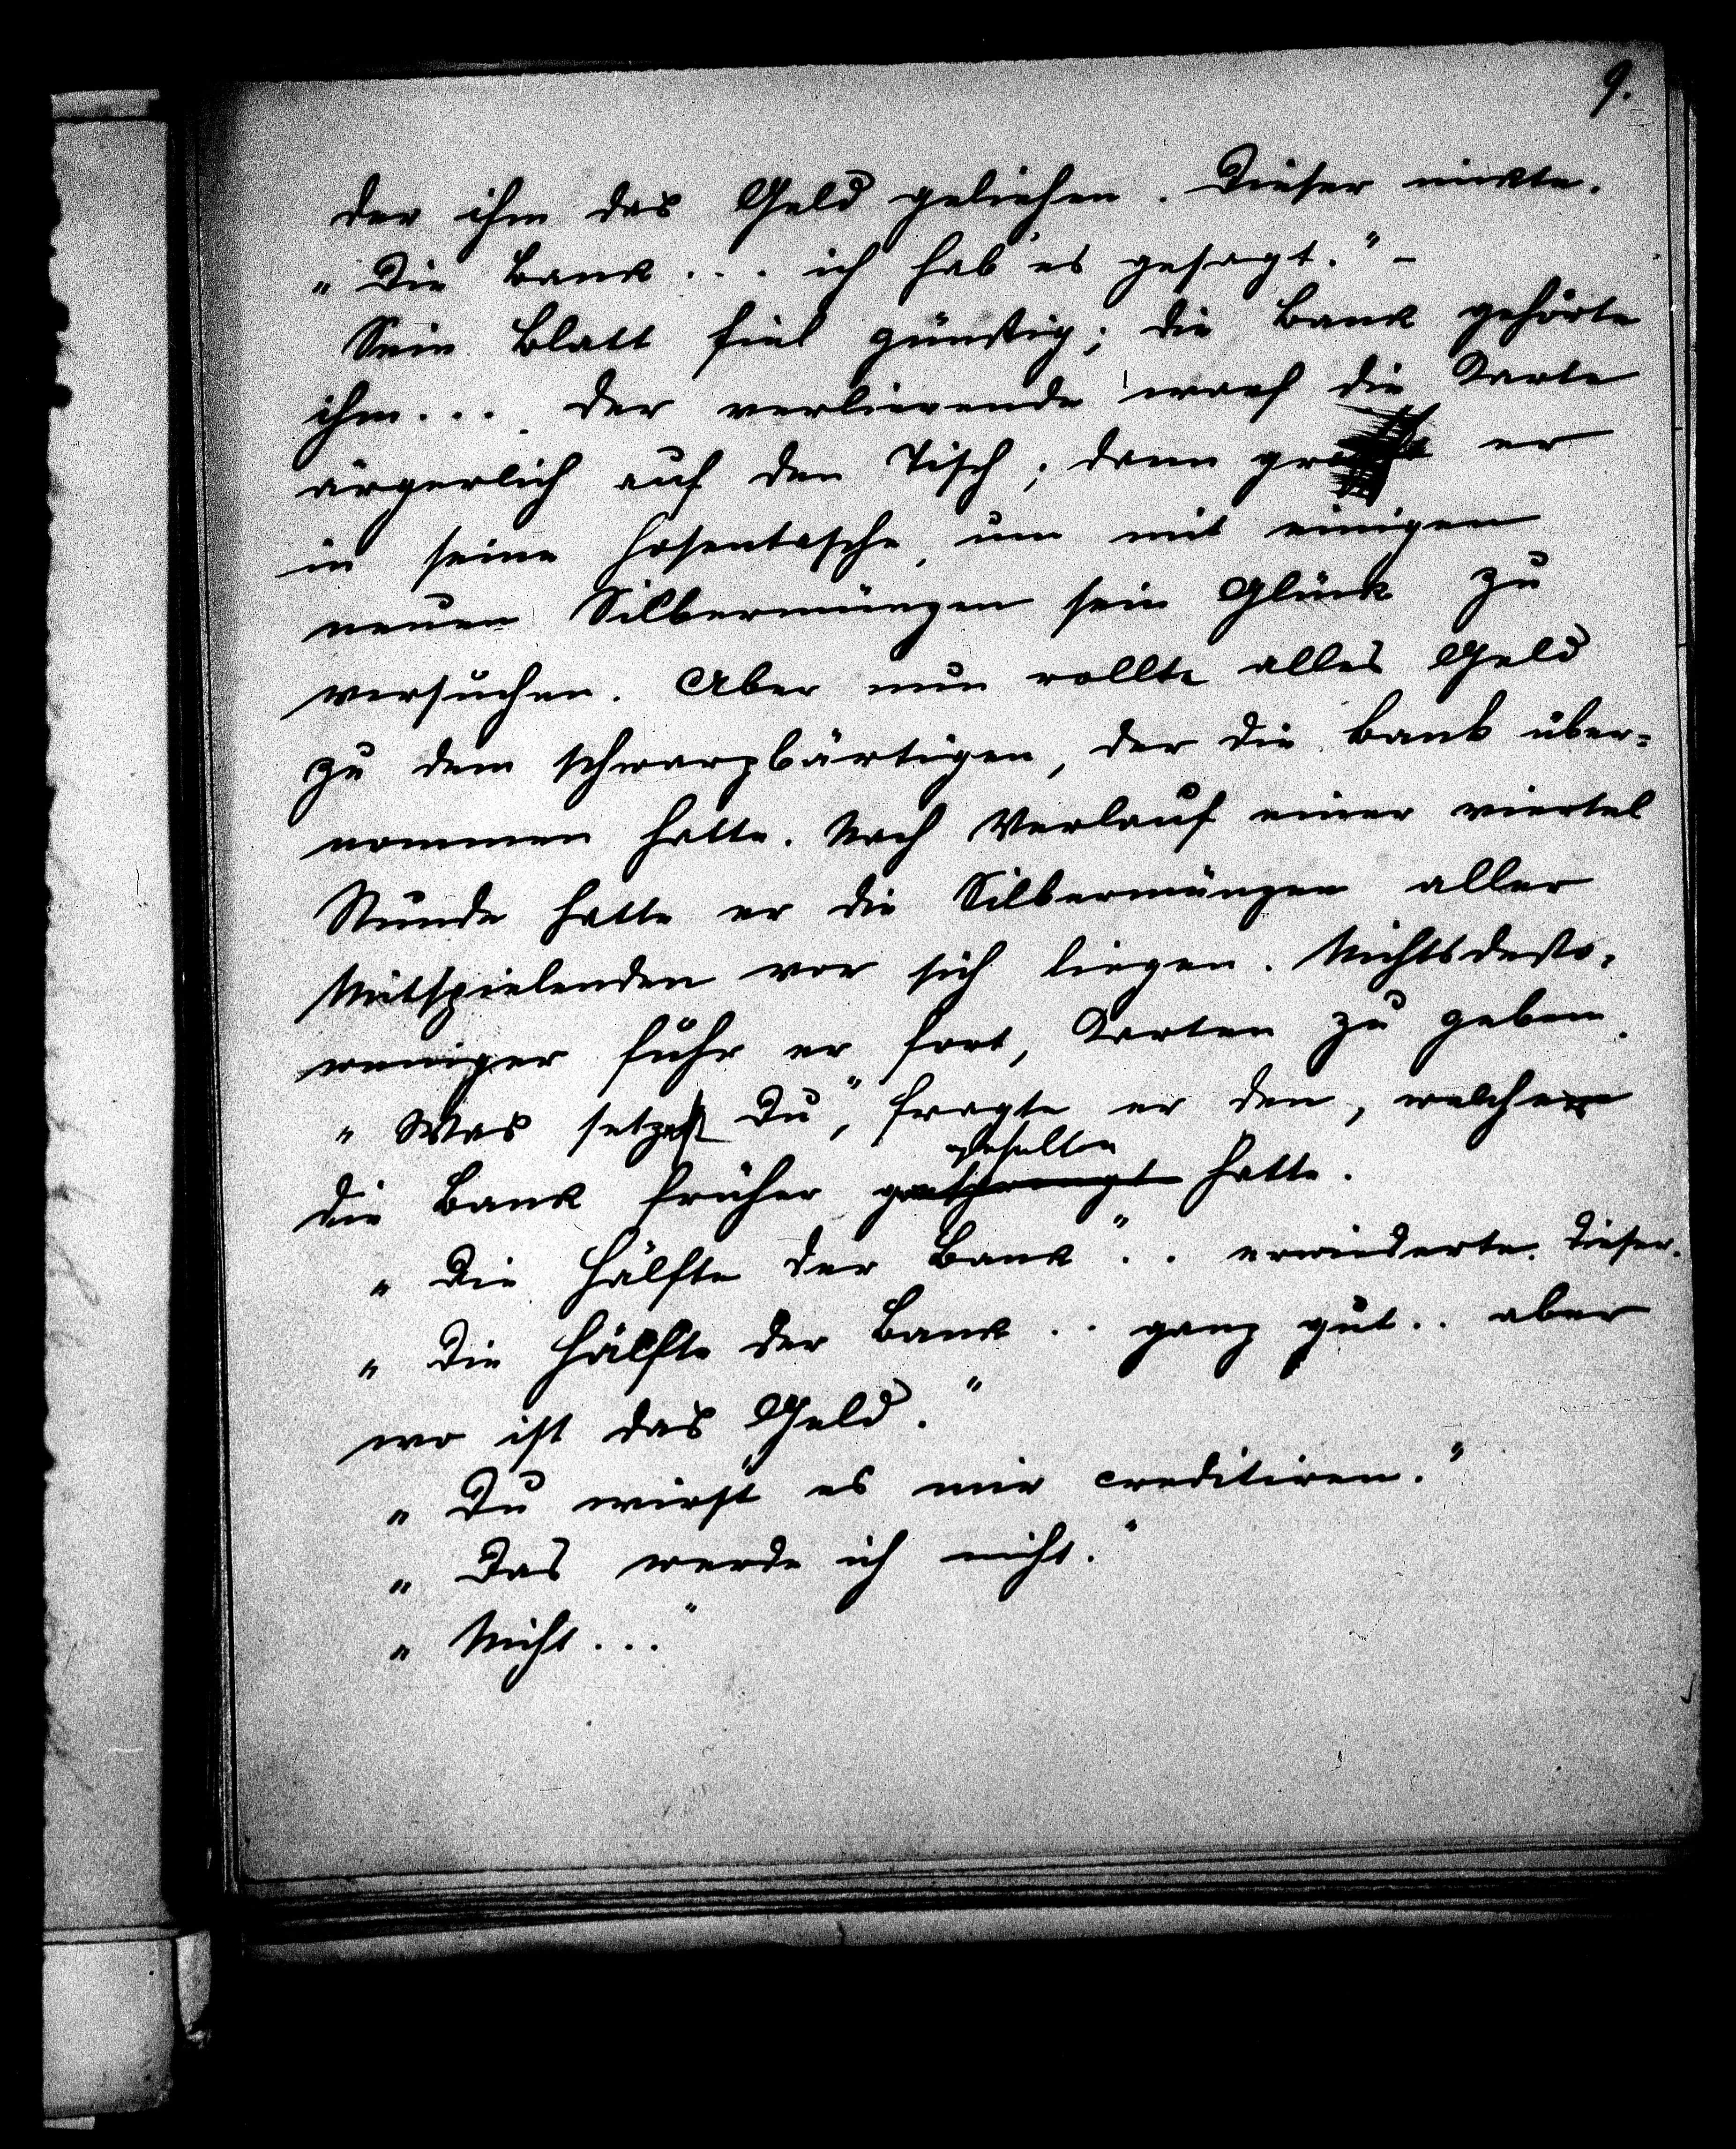 9.
der ihm das Geld geliehen. Dieser nickte.
„Die Bank... ich hab' es gesagt." –
Sein Blatt fiel günstig; die Bank gehörte
ihm... Der verlierende warf die Karte
ärgerlich auf den Tisch; dann er
in seine Hosentasche, um mit einigen
neuen Silbermünzen sein Glück zu
versuchen. Aber nun rollte alles Geld
zu dem schwarzbärtigen, der die Bank über-
nommen hatte. Nach Verlauf einer viertel
Stunde hatte er die Silbermünzen aller
Mitspielenden vor sich liegen. Nichtsdesto-
weniger fuhr er fort, Karten zu geben.
„Was setzest Du", fragte er den, welcher
gehalten
die Bank früher hatte.
„Die Hälfte der Bank".. erwiederte dieser.
„Die Hälfte der Bank.. ganz gut.. aber
wo ist das Geld."
„Du wirst es mir creditiren."
„Das werde ich nicht."
„Nicht..."